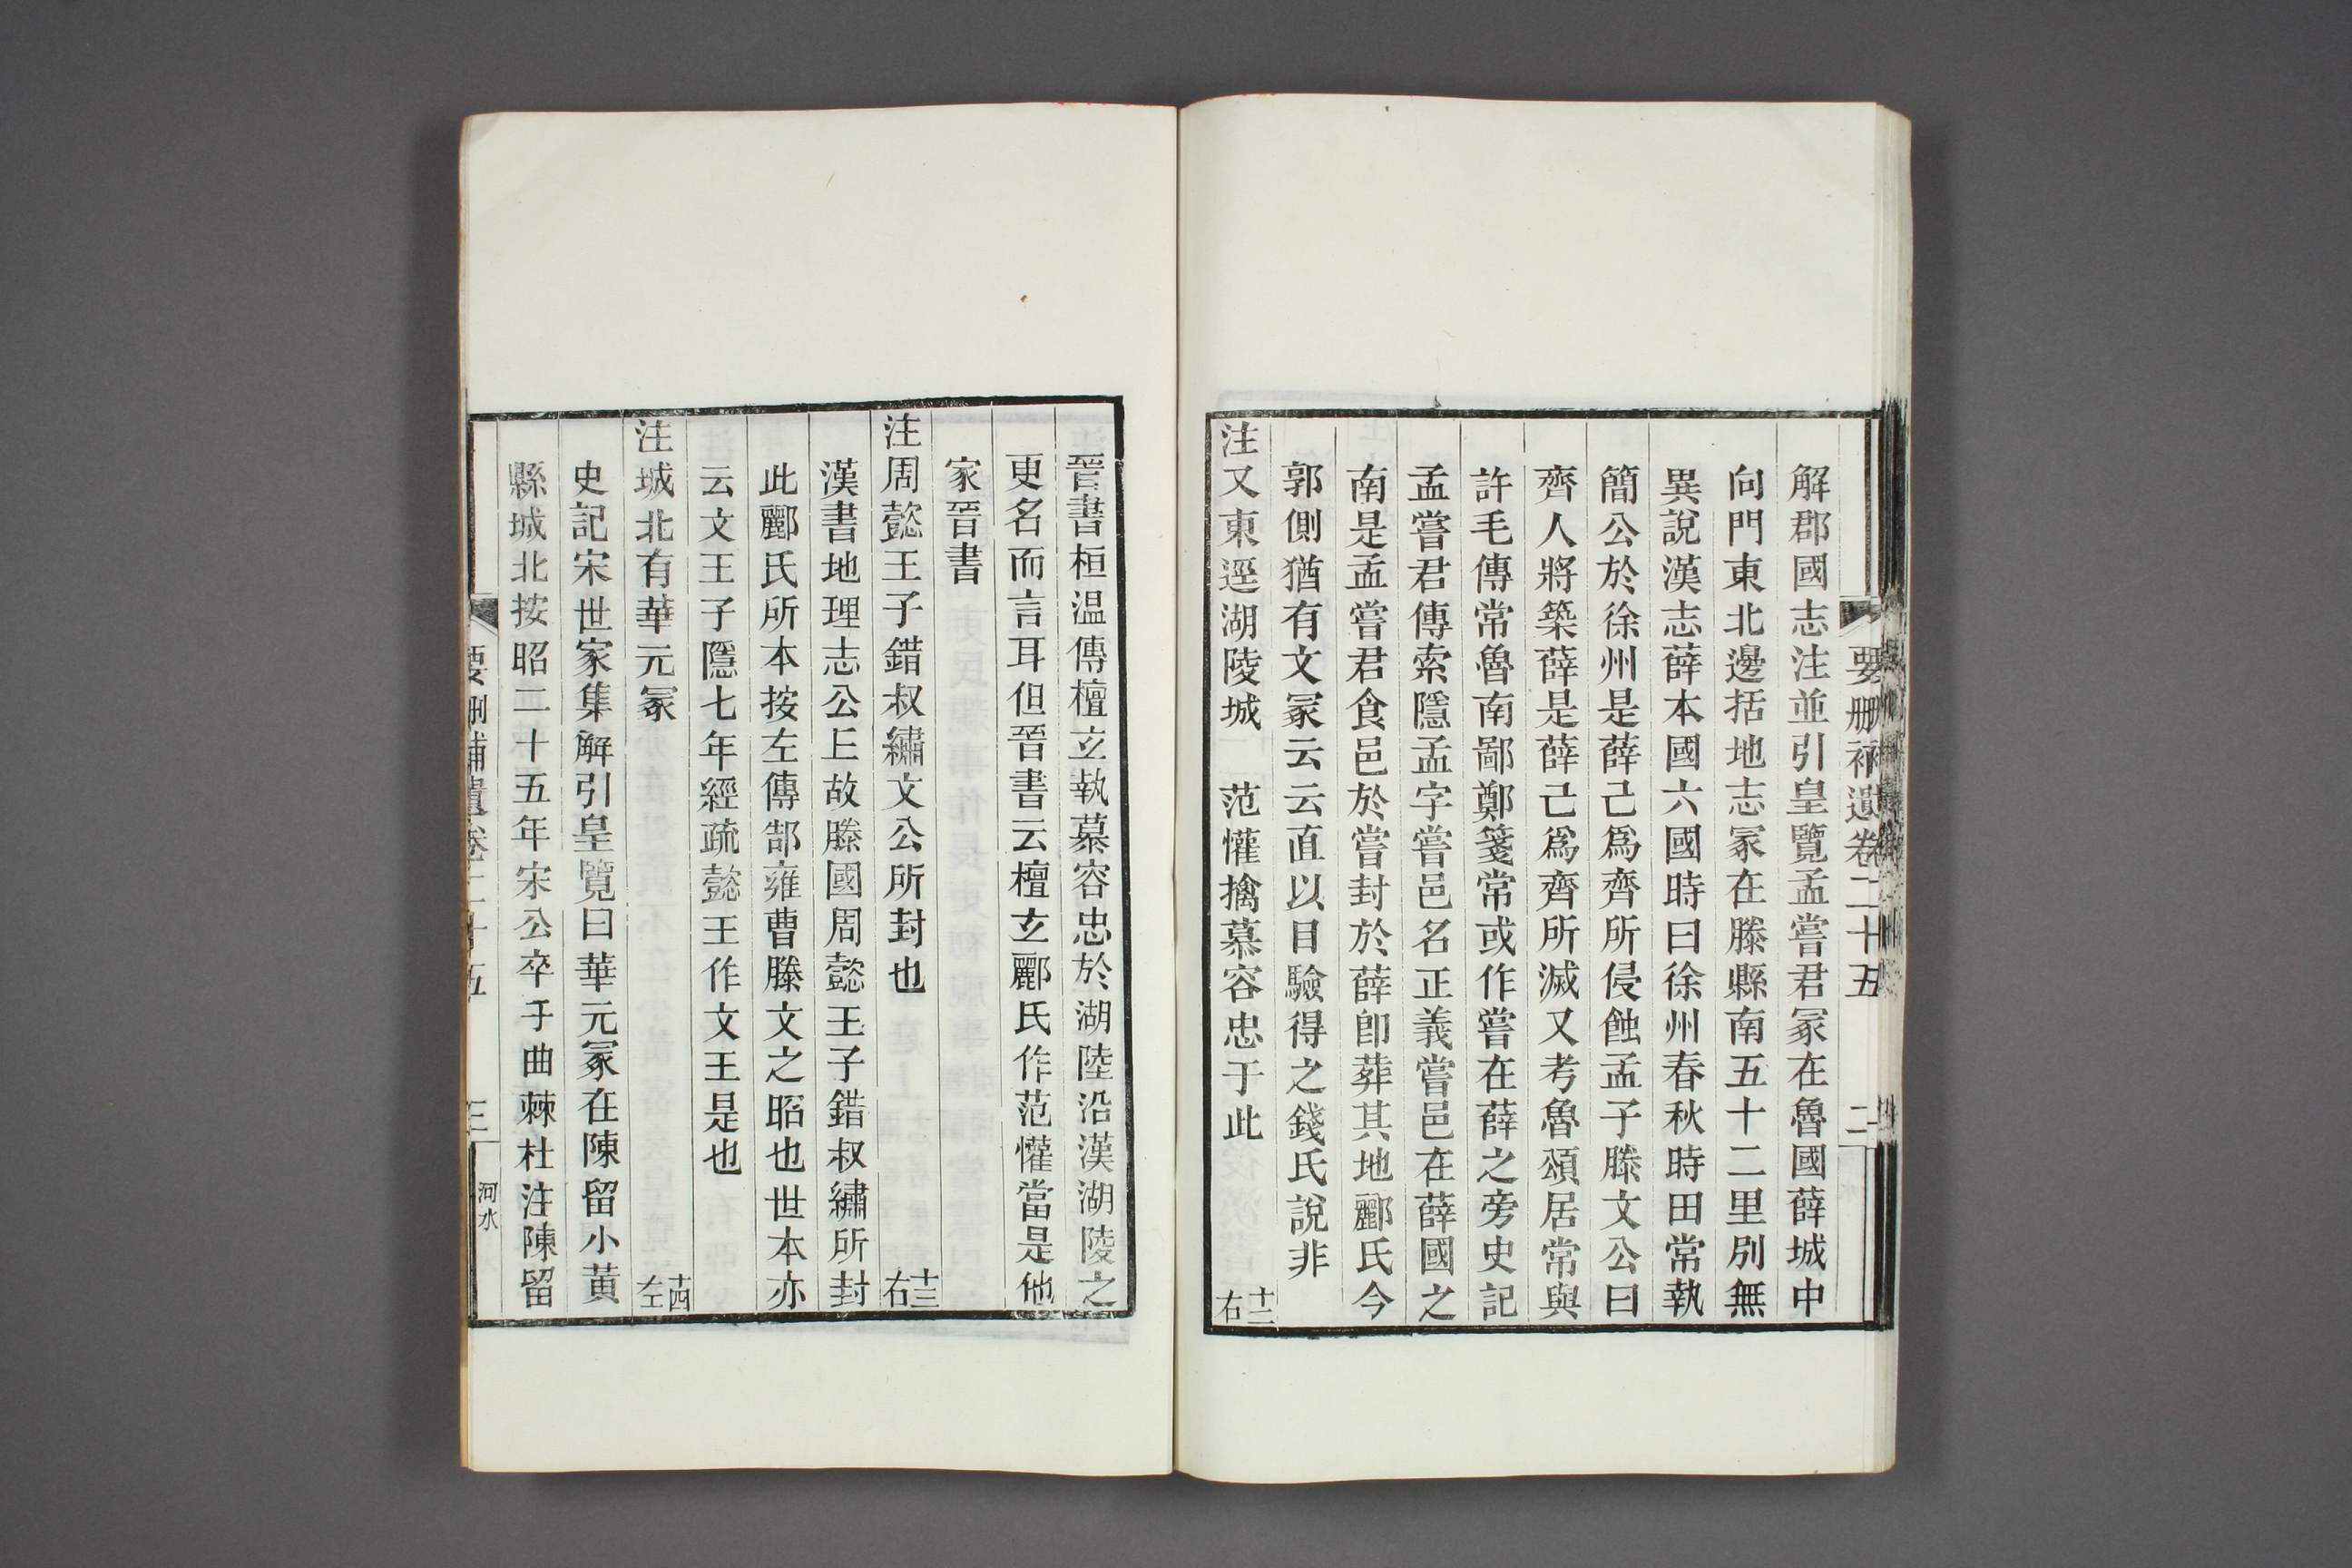 要刪補遺卷二十五
二
解郡國志注並引皇覽孟嘗君冢在魯國薛城中
向門東北邊括地志冢在滕縣南五十二里別無
異說漢志薛本國六國時曰徐州春秋時田常執
簡公於徐州是薛己爲齊所侵蝕孟子滕文公曰
齊人將築薛是薛己爲齊所滅又考魯頌居常與
許毛傳常魯南鄙鄭箋常或作嘗在薛之旁史記
孟嘗君傳索隱孟字嘗嘗邑名正義嘗邑在薛國之
南是孟嘗君食邑於嘗封於薛卽葬其地酈氏今
郭側猶有文冢云云直以目驗得之錢氏說非
注又東逕湖陵城 范懽擒慕容忠于此 十二右
晉書桓温傳檀玄執慕容忠於湖陸沿漢湖陵之
更名而言耳但晉書云檀玄酈氏作范懽當是他
家晉書
注周懿王子錯叔繡文公所封也 十三右
漢書地理志公丘故滕國周懿王子錯叔繡所封
此酈氏所本按左傳郜雍曹滕文之昭也世本亦
云文王子隱七年經疏懿王作文王是也
注城北有華元冢 十四左
史記宋世家集解引皇覽曰華元冢在陳留小黃
縣城北按昭二十五年宋公卒于曲棘杜注陳留
要刪補遺卷二十五
三
河水